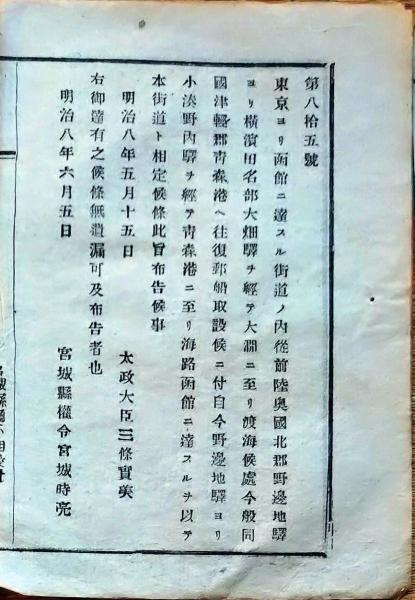 第八拾五號
東京ヨリ函館ニ達スル街道ノ內從前陸奥國北郡野邊地驛
ヨリ橫濱田名部大畑驛ヲ經テ大澗ニ至リ渡海候處今般同
國津輕郡靑森港ヘ往復郵船取設候ニ付自今野邊地驛ヨリ
小湊野內驛ヲ經テ靑森港ニ至リ海路函館ニ達スルヲ以テ
本街道ト相定候條此旨布告候事
明治八年五月十五日
太政大臣三條實美
右御達有之候條無遺漏可及布告者也
明治八年六月五日
宮城縣權令宮城時亮